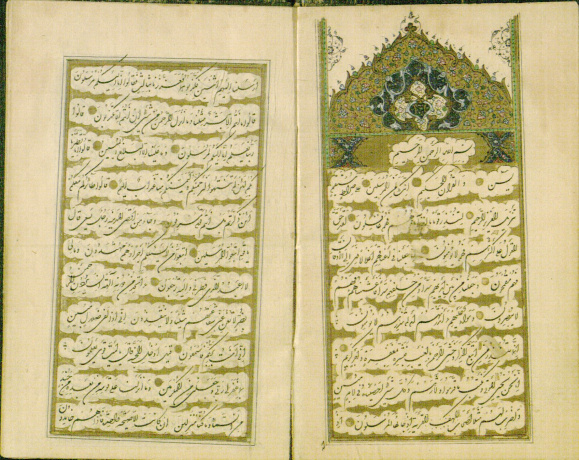 بسم الله الرحمن الرحيم
يس والقرآن الحكيم انك لمن المرسلين على صراط مستقيم
تنزيل العزيز الرحيم لتنذر قوما ما انذر آباؤهم فهم غافلون لقد حق
القول على اكثرهم فهم لا يؤمنون انا جعلنا في اعناقهم اغلالا فهي الى الاذقان
فهم مقمحون وجعلنا من بين ايديهم سدا ومن خلفهم سدا فاغشيناهم فهم
لا يبصرون وسواء عليهم ءانذرتهم ام لم تنذرهم لا يؤمنون
انما تنذر من اتبع الذكر وخشي الرحمن بالغيب فبشره بمغفرة واجر كريم
انا نحن نحيي الموتى ونكتب ما قدموا وآثارهم وكل شيء احصيناه في امام مبين
واضرب لهم مثلا اصحاب القرية اذ جاءها المرسلون
اذ ارسلنا اليهم اثنين فكذبوهما فعززنا بثالث فقالوا انا اليكم مرسلون
قالوا ما انتم الا بشر مثلنا وما انزل الرحمن من شيء ان انتم الا تكذبون قالوا ربنا
يعلم انا اليكم لمرسلون وما علينا الا البلاغ المبين قالوا انا تطيرنا
بكم لئن لم تنتهوا لنرجمنكم وليمسنكم منا عذاب اليم قالوا طائركم معكم
ائن ذكرتم بل انتم قوم مسرفون وجاء من اقصى المدينة رجل يسعى قال
يا قوم اتبعوا المرسلين اتبعوا من لا يسئلكم اجرا وهم مهتدون وما لي
لا اعبد الذي فطرني واليه ترجعون ءاتخذ من دونه آلهة ان يردن الرحمن
بضر لا تغن عني شفاعتهم شيئا ولا ينقذون اني اذا لفي ضلال مبين
اني آمنت بربكم فاسمعون قيل ادخل الجنة قال يا ليت قومي يعلمون بما
غفر لي ربي وجعلني من المكرمين وما انزلنا على قومه من بعده من جند
من السماء وما كنا منزلين ان كانت الا صيحة واحدة فاذا هم خامدون